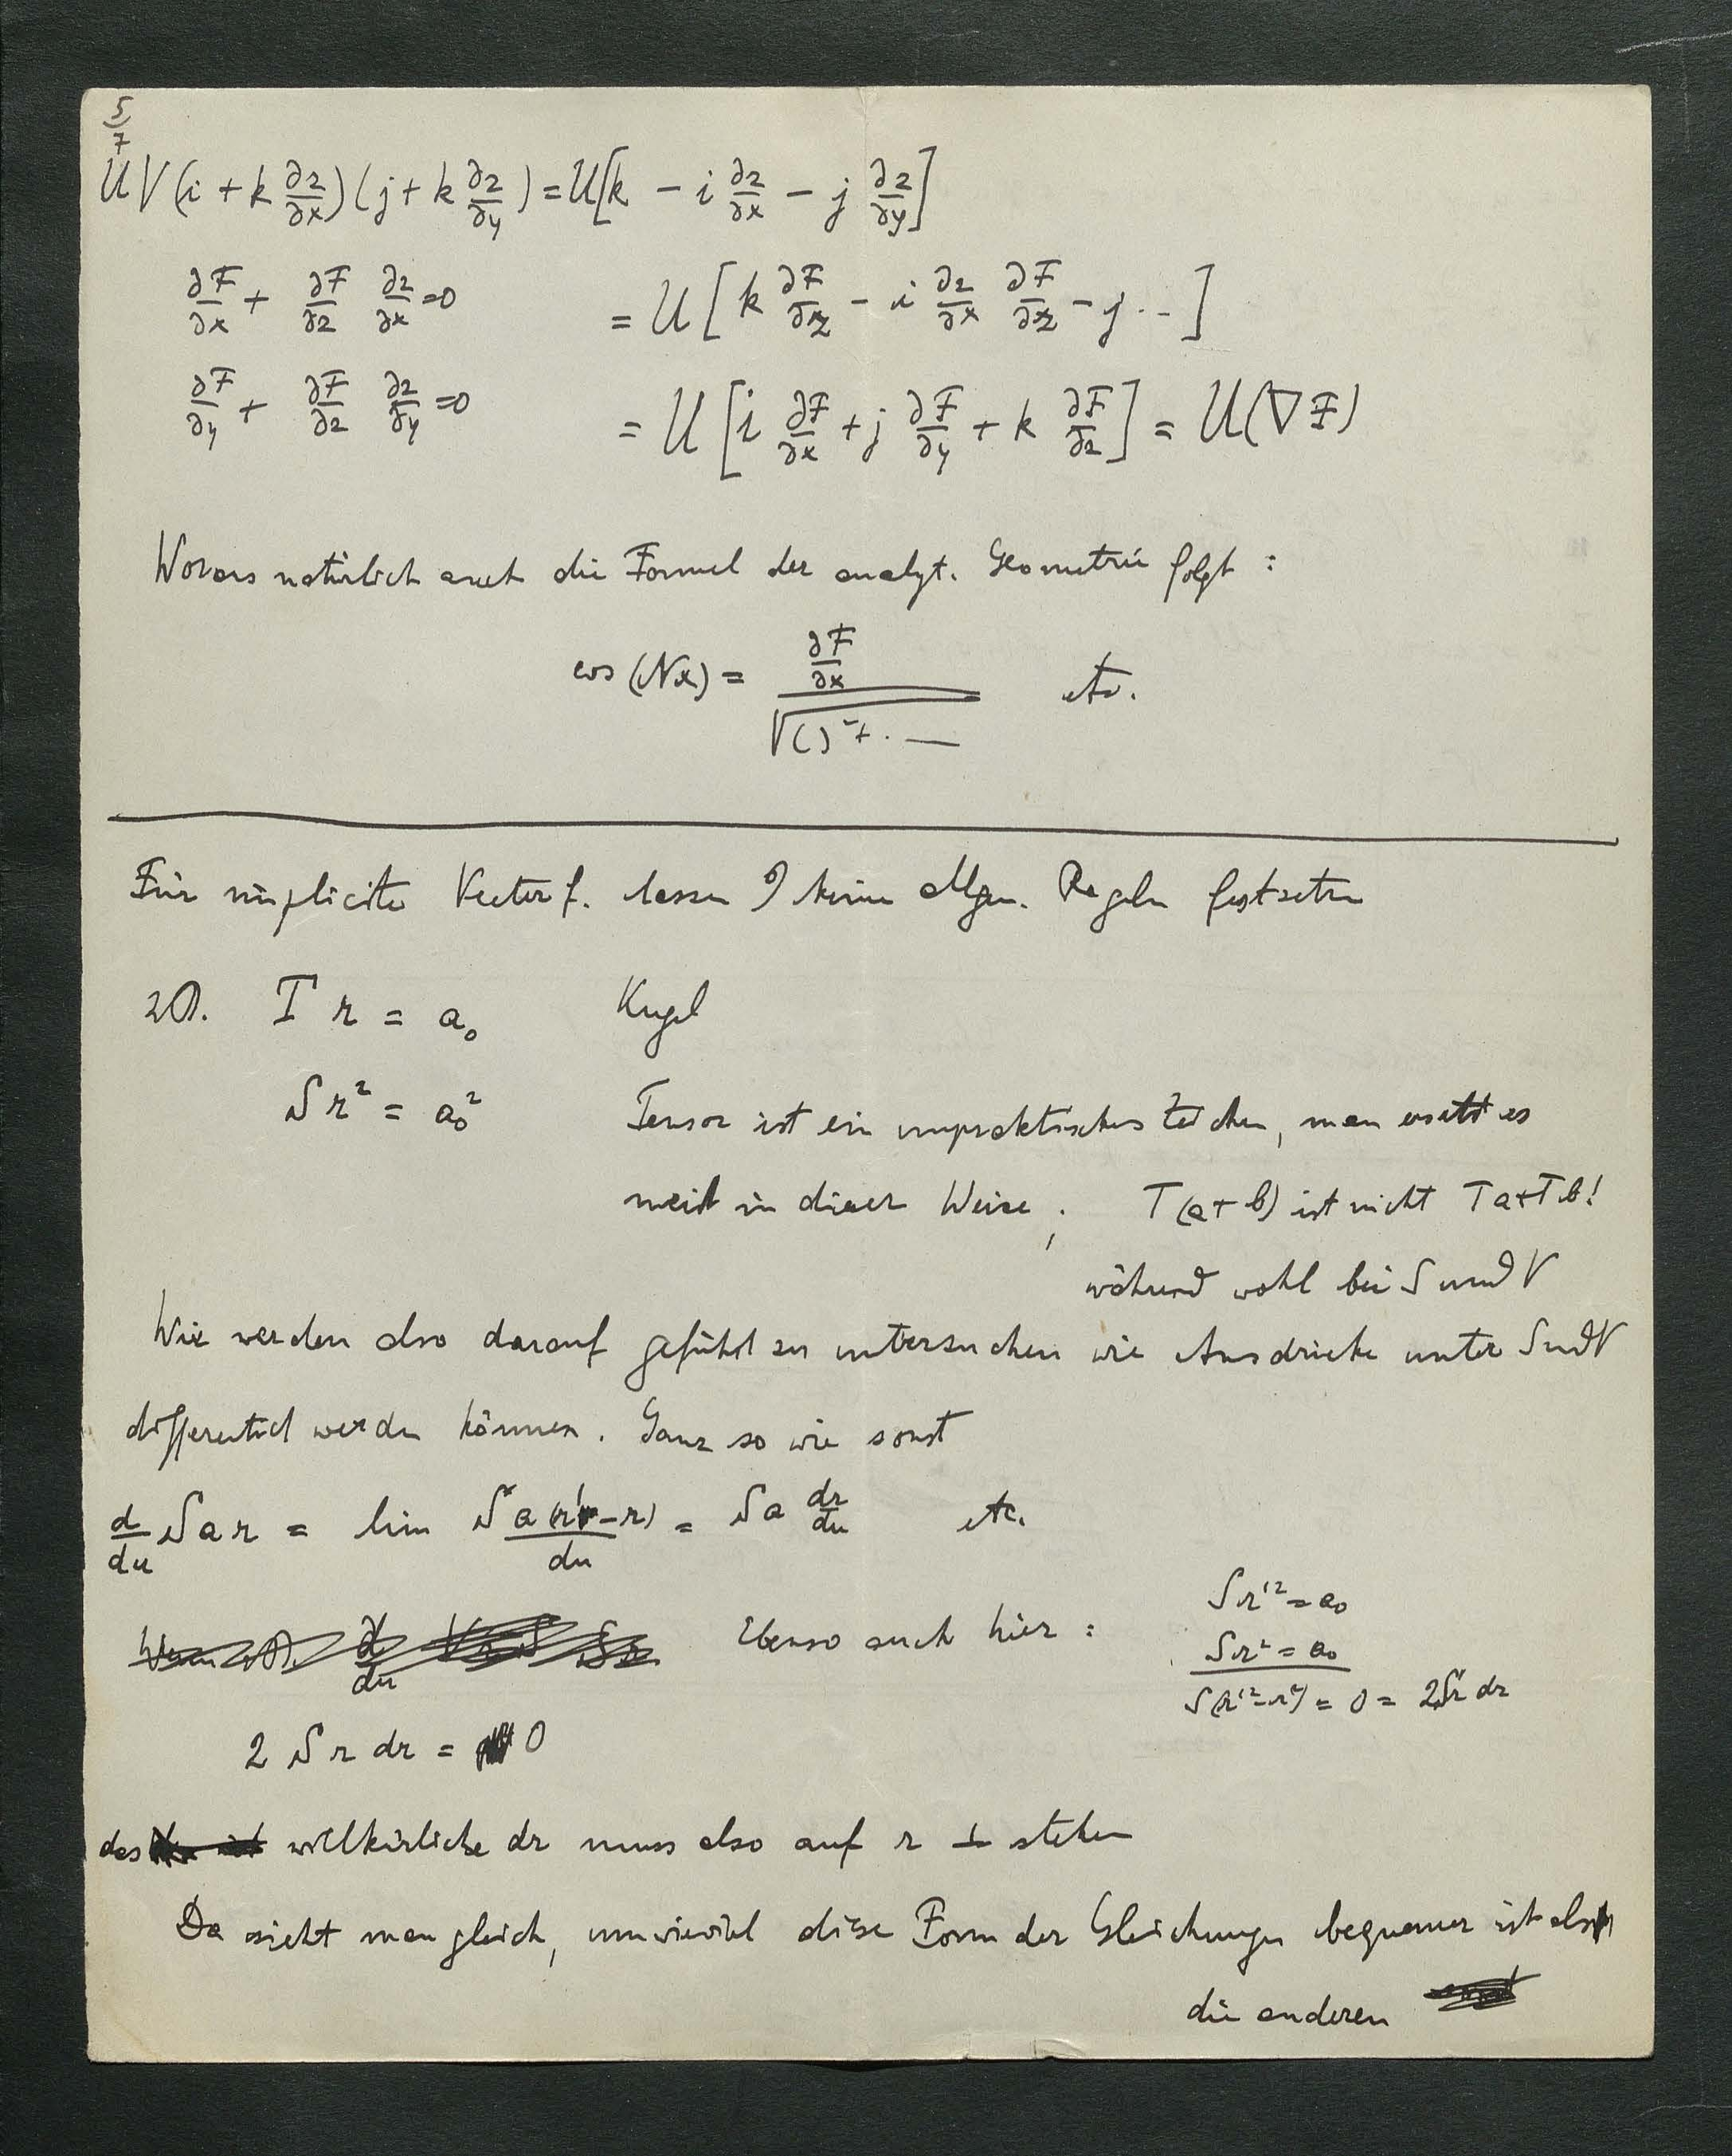 5/7
UV(i + k ∂z/∂x)(j + k ∂z/∂y) = U[k − i ∂z/∂x − j ∂z/∂y]
∂F/∂x + ∂F/∂z ∂z/∂x = 0 = U[k ∂F/∂z − i ∂z/∂x ∂F/∂z − j ·· ]
∂F/∂y + ∂F/∂z ∂z/∂y = 0 = U[i ∂F/∂x + j ∂F/∂y + k ∂F/∂z] = U(∇F)
Woraus natürlich auch die Formel der analyt. Geometrie folgt :
cos (Nx) = ∂F/∂x / √( )² + · — etc.
Für implicite Vector f. lassen keine allgem. Regeln festsetzen
zB. T r = a₀ Kugel
S r² = a₀² Tensor ist ein unpraktisches Zeichen, man ersetzt es
meist in dieser Weise ; T(a+b) ist nicht Ta+Tb!
während wohl bei S und V
Wir werden also darauf geführt zu untersuchen wie Ausdrücke unter S und V
differentiirt werden können. Ganz so wie sonst
d/du S a r = lim S a(r' − r)/du = S a dr/du etc.
Ebenso auch hier :
S r'² = a₀
S r² = a₀
S(r'² − r²) = 0 = 2 S r dr
2 S r dr = 0
das willkürliche dr muss also auf r ⊥ stehen
Da sieht man gleich, um wieviel diese Form der Gleichungen bequemer ist als
die anderen